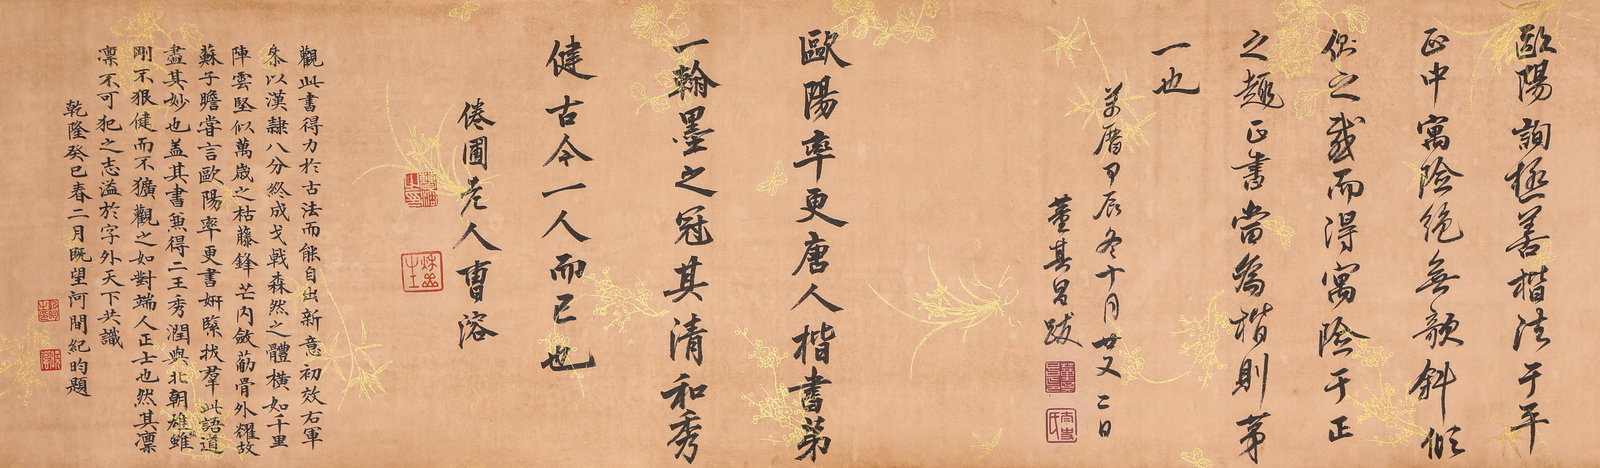 歐陽詢極善楷法于平
正中寓險絕無欹斜傾
側之感而得寓險于正
之趣正書當為楷則第
一也
萬曆甲辰冬十月廿又二日
董其昌跋
歐陽率更唐人楷書第
一翰墨之冠其清和秀
健古今一人而已也
倦圃老人曹溶
觀此書得力於古法而能自出新意初效右軍
參以漢隸八分終成戈戟森然之體橫如千里
陣雲堅似萬歲之枯藤鋒芒內斂筋骨外耀故
蘇子瞻嘗言歐陽率更書妍緊拔羣此語道
盡其妙也蓋其書兼得二王秀潤與北朝雄
剛不狠健而不獷觀之如對端人正士也然其凜
凜不可犯之志溢於字外天下共識
乾隆癸巳春二月既望河間紀昀題